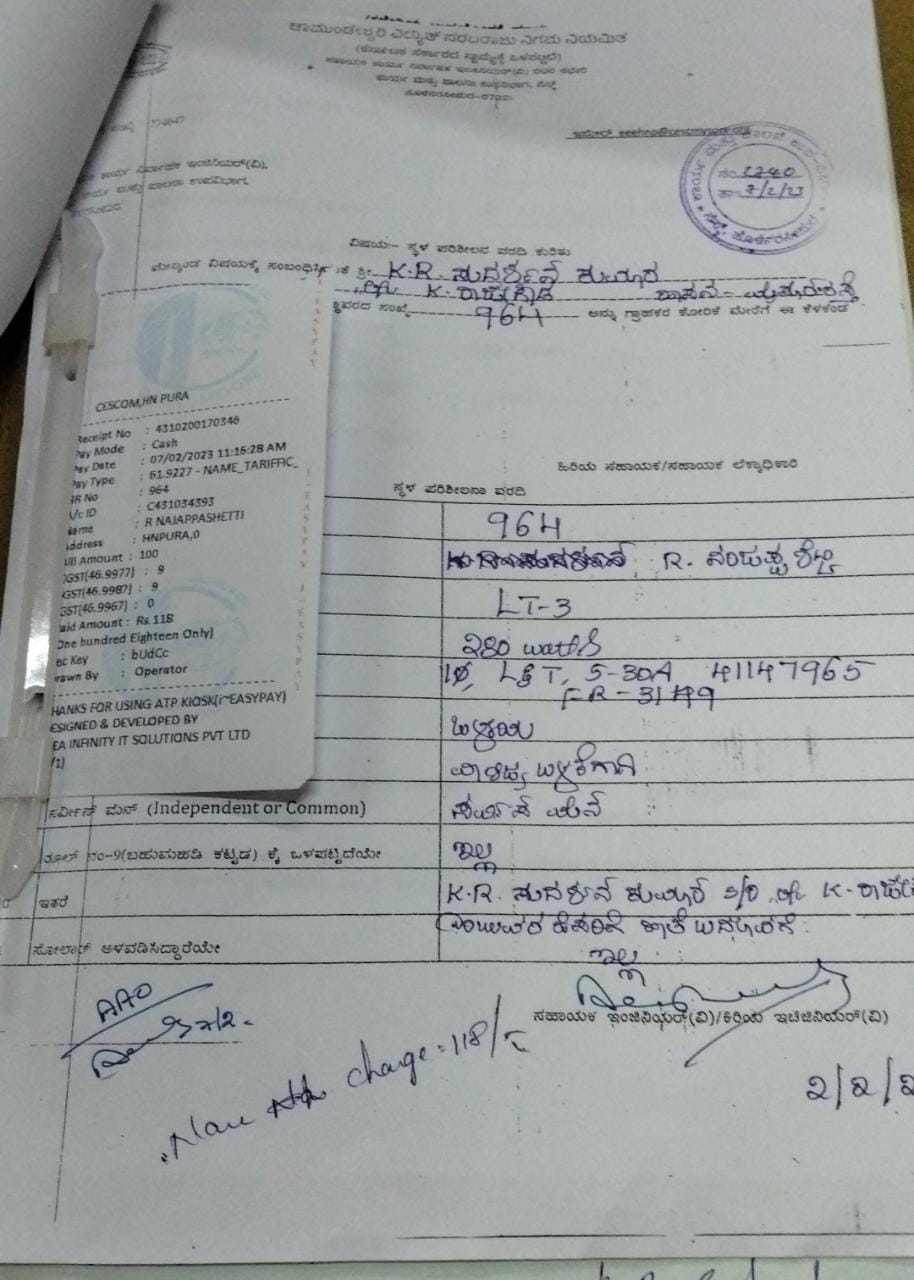 ಚಾಮುಂಡೇಶ್ವರಿ ವಿದ್ಯುತ್ ಸರಬರಾಜು ನಿಗಮ ನಿಯಮಿತ
(ಕರ್ನಾಟಕ ಸರ್ಕಾರದ ಸ್ವಾಮ್ಯಕ್ಕೆ ಒಳಪಟ್ಟಿದೆ)
ಕಾರ್ಯ ಮತ್ತು ಪಾಲನಾ ಉಪವಿಭಾಗ,
ಇಮೇಲ್ eeehnp@cescmysore.org
ನಂ. 2740
ತಾ. 7/2/23
ಕಾರ್ಯ ನಿರ್ವಾಹಕ ಇಂಜಿನಿಯರ್(ವಿ),
ಮತ್ತು ಪಾಲನಾ ಉಪವಿಭಾಗ,
ವಿಷಯ:- ಸ್ಥಳ ಪರಿಶೀಲನ ವರದಿ ಕುರಿತು
ಮೇಲ್ಕಂಡ ವಿಷಯಕ್ಕೆ ಸಂಬಂಧಿಸಿದಂತೆ ಶ್ರೀ K.R. ಸುದರ್ಶನ್ ಕುಮಾರ
ಸ್ಥಾವರದ ಸಂಖ್ಯೆ 964 ಅನ್ನು ಗ್ರಾಹಕರ ಕೋರಿಕೆ ಮೇರೆಗೆ ಈ ಕೆಳಕಂಡ
ಹಿರಿಯ ಸಹಾಯಕ/ಸಹಾಯಕ ಲೆಕ್ಕಾಧಿಕಾರಿ
ಸ್ಥಳ ಪರಿಶೀಲನಾ ವರದಿ
CESCOM,HN PURA
Receipt No : 4310200170346
Pay Mode : Cash
Pay Date : 07/02/2023 11:16:28 AM
Pay Type : 61.9227 - NAME_TARIFFIC_
RR No : 964
A/c ID : C431034393
Name : R NAJAPPASHETTI
Address : HNPURA,0
Bill Amount : 100
CGST(46.9977) : 9
SGST(46.9987) : 9
GST(46.9967) : 0
Paid Amount : Rs.118
One hundred Eighteen Only)
Rec Key : bUdCc
Drawn By : Operator
THANKS FOR USING ATP KIOSK(i~EASYPAY)
DESIGNED & DEVELOPED BY
IDEA INFINITY IT SOLUTIONS PVT LTD
964
R. ನಂಜಪ್ಪ ಶೆಟ್ಟಿ
LT-3
280 watts
1ϕ, L&T, 5-30A 41147965
FR-3149
ವಾಣಿಜ್ಯ ಬಳಕೆಗಾಗಿ
ಸರ್ವೀಸ್ ಮೆನ್ (Independent or Common) ಸರ್ವಿಸ್ ಮೇನ್
ರೂಲ್ ನಂ-9(ಬಹುಮಹಡಿ ಕಟ್ಟಡ) ಕ್ಕೆ ಒಳಪಟ್ಟಿದೆಯೇ ಇಲ್ಲ
ಇತರೆ K.R. ಸುದರ್ಶನ್ ಕುಮಾರ್ S/O
ಸೋಲಾರ್ ಅಳವಡಿಸಿದ್ದಾರೆಯೇ ಇಲ್ಲ
AAO
7/2
ಸಹಾಯಕ ಇಂಜಿನಿಯರ್(ವಿ)/ಕಿರಿಯ ಇಂಜಿನಿಯರ್(ವಿ)
charge=118/-